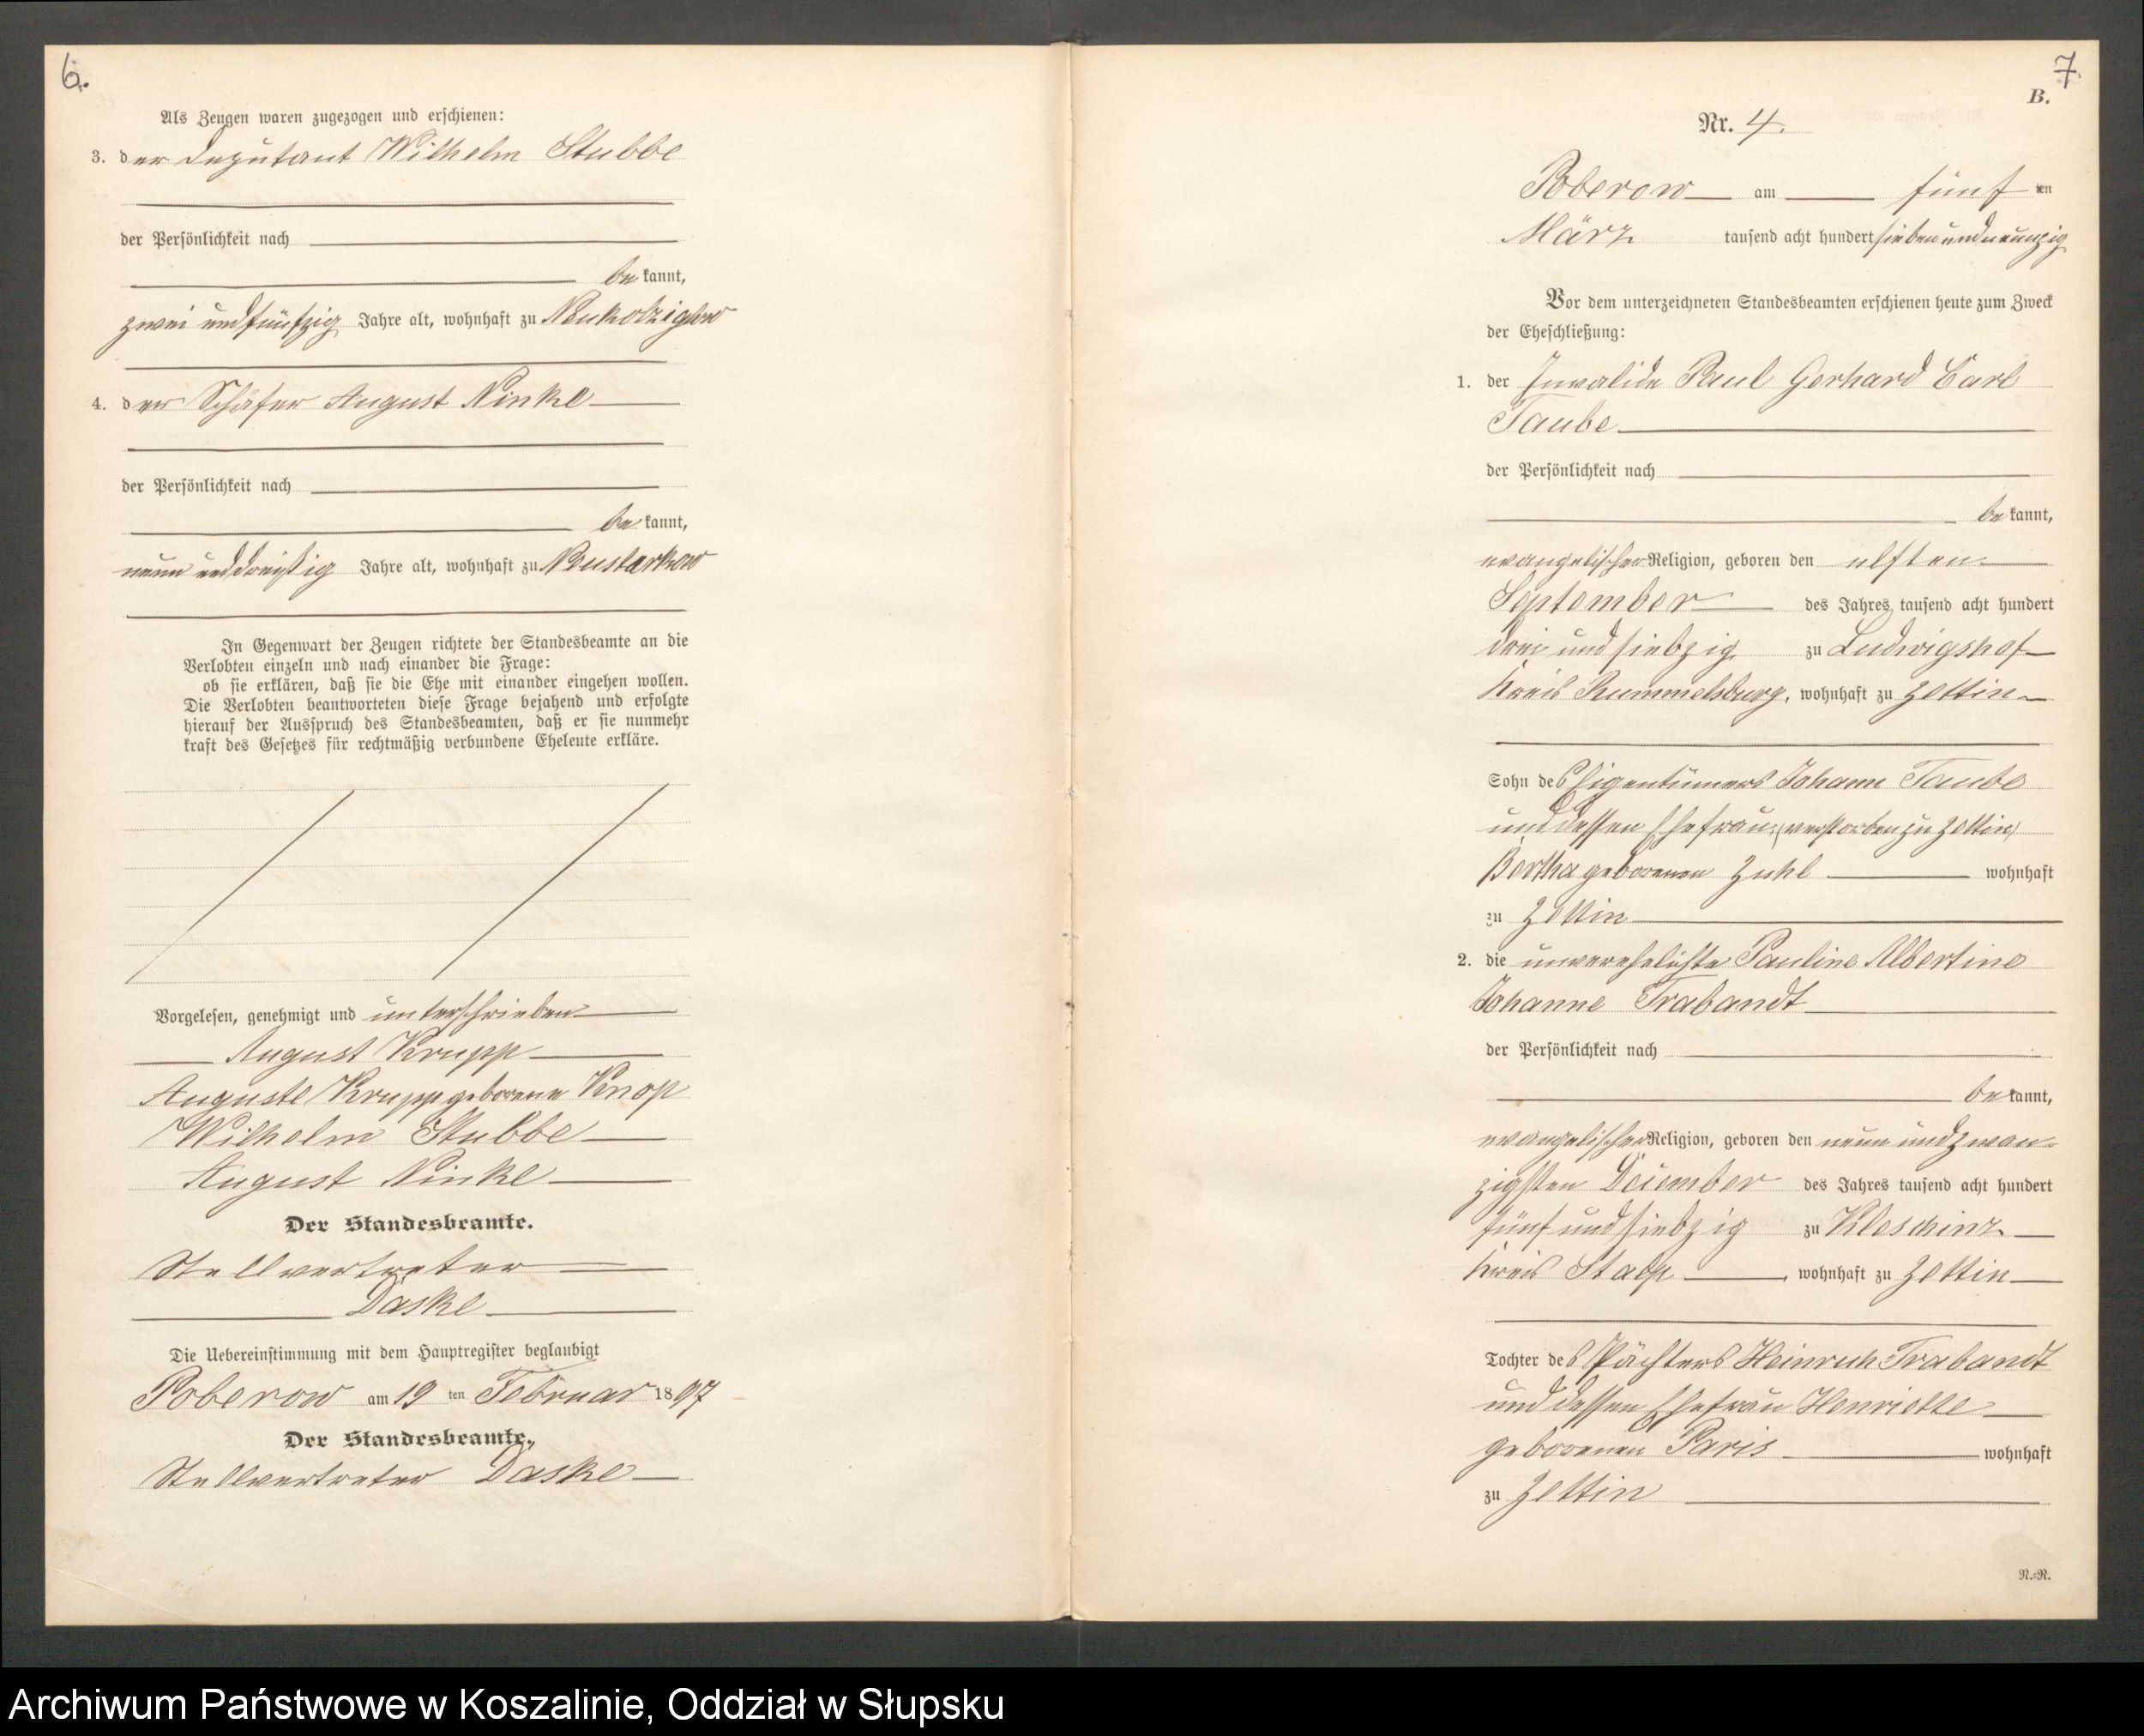 6.
Als Zeugen waren zugezogen und erschienen:
3. der Deputant Wilhelm Stubbe
der Persönlichkeit nach
bekannt,
zwei und fünfzig Jahre alt, wohnhaft zu Neukolziglow
4. der Schäfer August Ninke
der Persönlichkeit nach
bekannt,
neun und dreißig Jahre alt, wohnhaft zu Neustarkow
In Gegenwart der Zeugen richtete der Standesbeamte an die
Verlobten einzeln und nach einander die Frage:
ob sie erklären, daß sie die Ehe mit einander eingehen wollen.
Die Verlobten beantworteten diese Frage bejahend und erfolgte
hierauf der Ausspruch des Standesbeamten, daß er sie nunmehr
kraft des Gesetzes für rechtmäßig verbundene Eheleute erkläre.
Vorgelesen, genehmigt und unterschrieben
August Krupp
Auguste Krupp geborene Knop
Wilhelm Stubbe
August Ninke
Der Standesbeamte.
Stellvertreter
Daske
Die Uebereinstimmung mit dem Hauptregister beglaubigt
Poberow am 19 ten Februar 1897
Der Standesbeamte.
Stellvertreter Daske
7.
B.
Nr. 4.
Poberow am fünf ten
März tausend acht hundert sieben und neunzig
Vor dem unterzeichneten Standesbeamten erschienen heute zum Zweck
der Eheschließung:
1. der Invalide Paul Gerhard Carl
Taube
der Persönlichkeit nach
bekannt,
evangelischer Religion, geboren den elften
September des Jahres tausend acht hundert
drei und siebzig zu Ludwigshof
Kreis Rummelsburg, wohnhaft zu Zettin
Sohn des Eigentümers Johann Taube
und dessen Ehefrau, (verstorben zu Zettin)
Bertha geborenen Zuhl wohnhaft
zu Zettin
2. die unverehelichte Pauline Albertine
Johanne Trabandt
der Persönlichkeit nach
bekannt,
evangelischer Religion, geboren den neun und zwan-
zigsten Dezember des Jahres tausend acht hundert
fünf und siebzig zu Kleschinz
Kreis Stolp, wohnhaft zu Zettin
Tochter des Pächters Heinrich Trabandt
und dessen Ehefrau Henriette
geborenen Paris wohnhaft
zu Zettin
N.=N.
Archiwum Państwowe w Koszalinie, Oddział w Słupsku